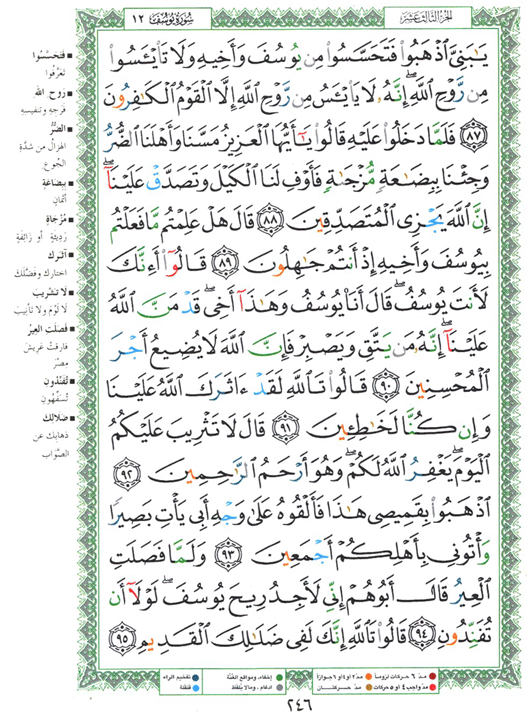 الجزء الثالث عشر
سورة يوسف ١٢
يَٰبَنِيَّ ٱذْهَبُوا۟ فَتَحَسَّسُوا۟ مِن يُوسُفَ وَأَخِيهِ وَلَا تَا۟يْـَٔسُوا۟
مِن رَّوْحِ ٱللَّهِ ۖ إِنَّهُۥ لَا يَا۟يْـَٔسُ مِن رَّوْحِ ٱللَّهِ إِلَّا ٱلْقَوْمُ ٱلْكَٰفِرُونَ
﴿٨٧﴾ فَلَمَّا دَخَلُوا۟ عَلَيْهِ قَالُوا۟ يَٰٓأَيُّهَا ٱلْعَزِيزُ مَسَّنَا وَأَهْلَنَا ٱلضُّرُّ
وَجِئْنَا بِبِضَٰعَةٍ مُّزْجَىٰةٍ فَأَوْفِ لَنَا ٱلْكَيْلَ وَتَصَدَّقْ عَلَيْنَآ ۖ
إِنَّ ٱللَّهَ يَجْزِى ٱلْمُتَصَدِّقِينَ ﴿٨٨﴾ قَالَ هَلْ عَلِمْتُم مَّا فَعَلْتُم
بِيُوسُفَ وَأَخِيهِ إِذْ أَنتُمْ جَٰهِلُونَ ﴿٨٩﴾ قَالُوٓا۟ أَءِنَّكَ
لَأَنتَ يُوسُفُ ۖ قَالَ أَنَا۠ يُوسُفُ وَهَٰذَآ أَخِى ۖ قَدْ مَنَّ ٱللَّهُ
عَلَيْنَآ ۖ إِنَّهُۥ مَن يَتَّقِ وَيَصْبِرْ فَإِنَّ ٱللَّهَ لَا يُضِيعُ أَجْرَ
ٱلْمُحْسِنِينَ ﴿٩٠﴾ قَالُوا۟ تَٱللَّهِ لَقَدْ ءَاثَرَكَ ٱللَّهُ عَلَيْنَا
وَإِن كُنَّا لَخَٰطِـِٔينَ ﴿٩١﴾ قَالَ لَا تَثْرِيبَ عَلَيْكُمُ
ٱلْيَوْمَ ۖ يَغْفِرُ ٱللَّهُ لَكُمْ ۖ وَهُوَ أَرْحَمُ ٱلرَّٰحِمِينَ ﴿٩٢﴾
ٱذْهَبُوا۟ بِقَمِيصِى هَٰذَا فَأَلْقُوهُ عَلَىٰ وَجْهِ أَبِى يَأْتِ بَصِيرًا
وَأْتُونِى بِأَهْلِكُمْ أَجْمَعِينَ ﴿٩٣﴾ وَلَمَّا فَصَلَتِ
ٱلْعِيرُ قَالَ أَبُوهُمْ إِنِّى لَأَجِدُ رِيحَ يُوسُفَ ۖ لَوْلَآ أَن
تُفَنِّدُونِ ﴿٩٤﴾ قَالُوا۟ تَٱللَّهِ إِنَّكَ لَفِى ضَلَٰلِكَ ٱلْقَدِيمِ ﴿٩٥﴾
■ فَتَحَسَّسُوا
تَعَرَّفُوا
■ رَوح الله
فَرَجِه وتنفيسِه
■ الضُّرُّ
الهُزالُ من شدَّةِ
الجُوعِ
■ بِبِضَاعَةٍ
أثْمَانٍ
■ مُزْجَاةٍ
رَدِيئَةٍ أو زَائِفَةٍ
■ آثَرَكَ
اختارك وفضَّلَك
■ لا تَثْرِيبَ
لا لَوْمَ ولا تأنيبَ
■ فَصَلَتِ العِيرُ
فارقَتْ عَرِيشَ
مِصْرَ
■ تُفَنِّدُونِ
تُسَفِّهُونِ
■ ضَلَالِكَ
ذهابِك عن
الصَّواب
مدّ ٦ حركات لزوماً
مدّ ٢ أو ٤ أو ٦ جوازاً
إخفاء، ومواقع الغُنَّة
تفخيم الراء
مدّ واجب ٤ أو ٥ حركات
مدّ حركتان
إدغام، وما لا يُلفَظ
قلقلة
٢٤٦